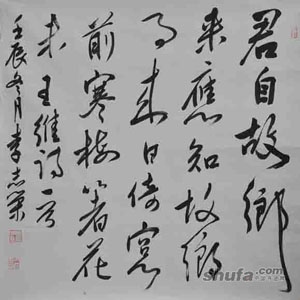 君自故鄉
来應知故鄉
事来日倚窓
前寒梅著花
未 王維詩一首
壬辰冬月李志
shufa.com